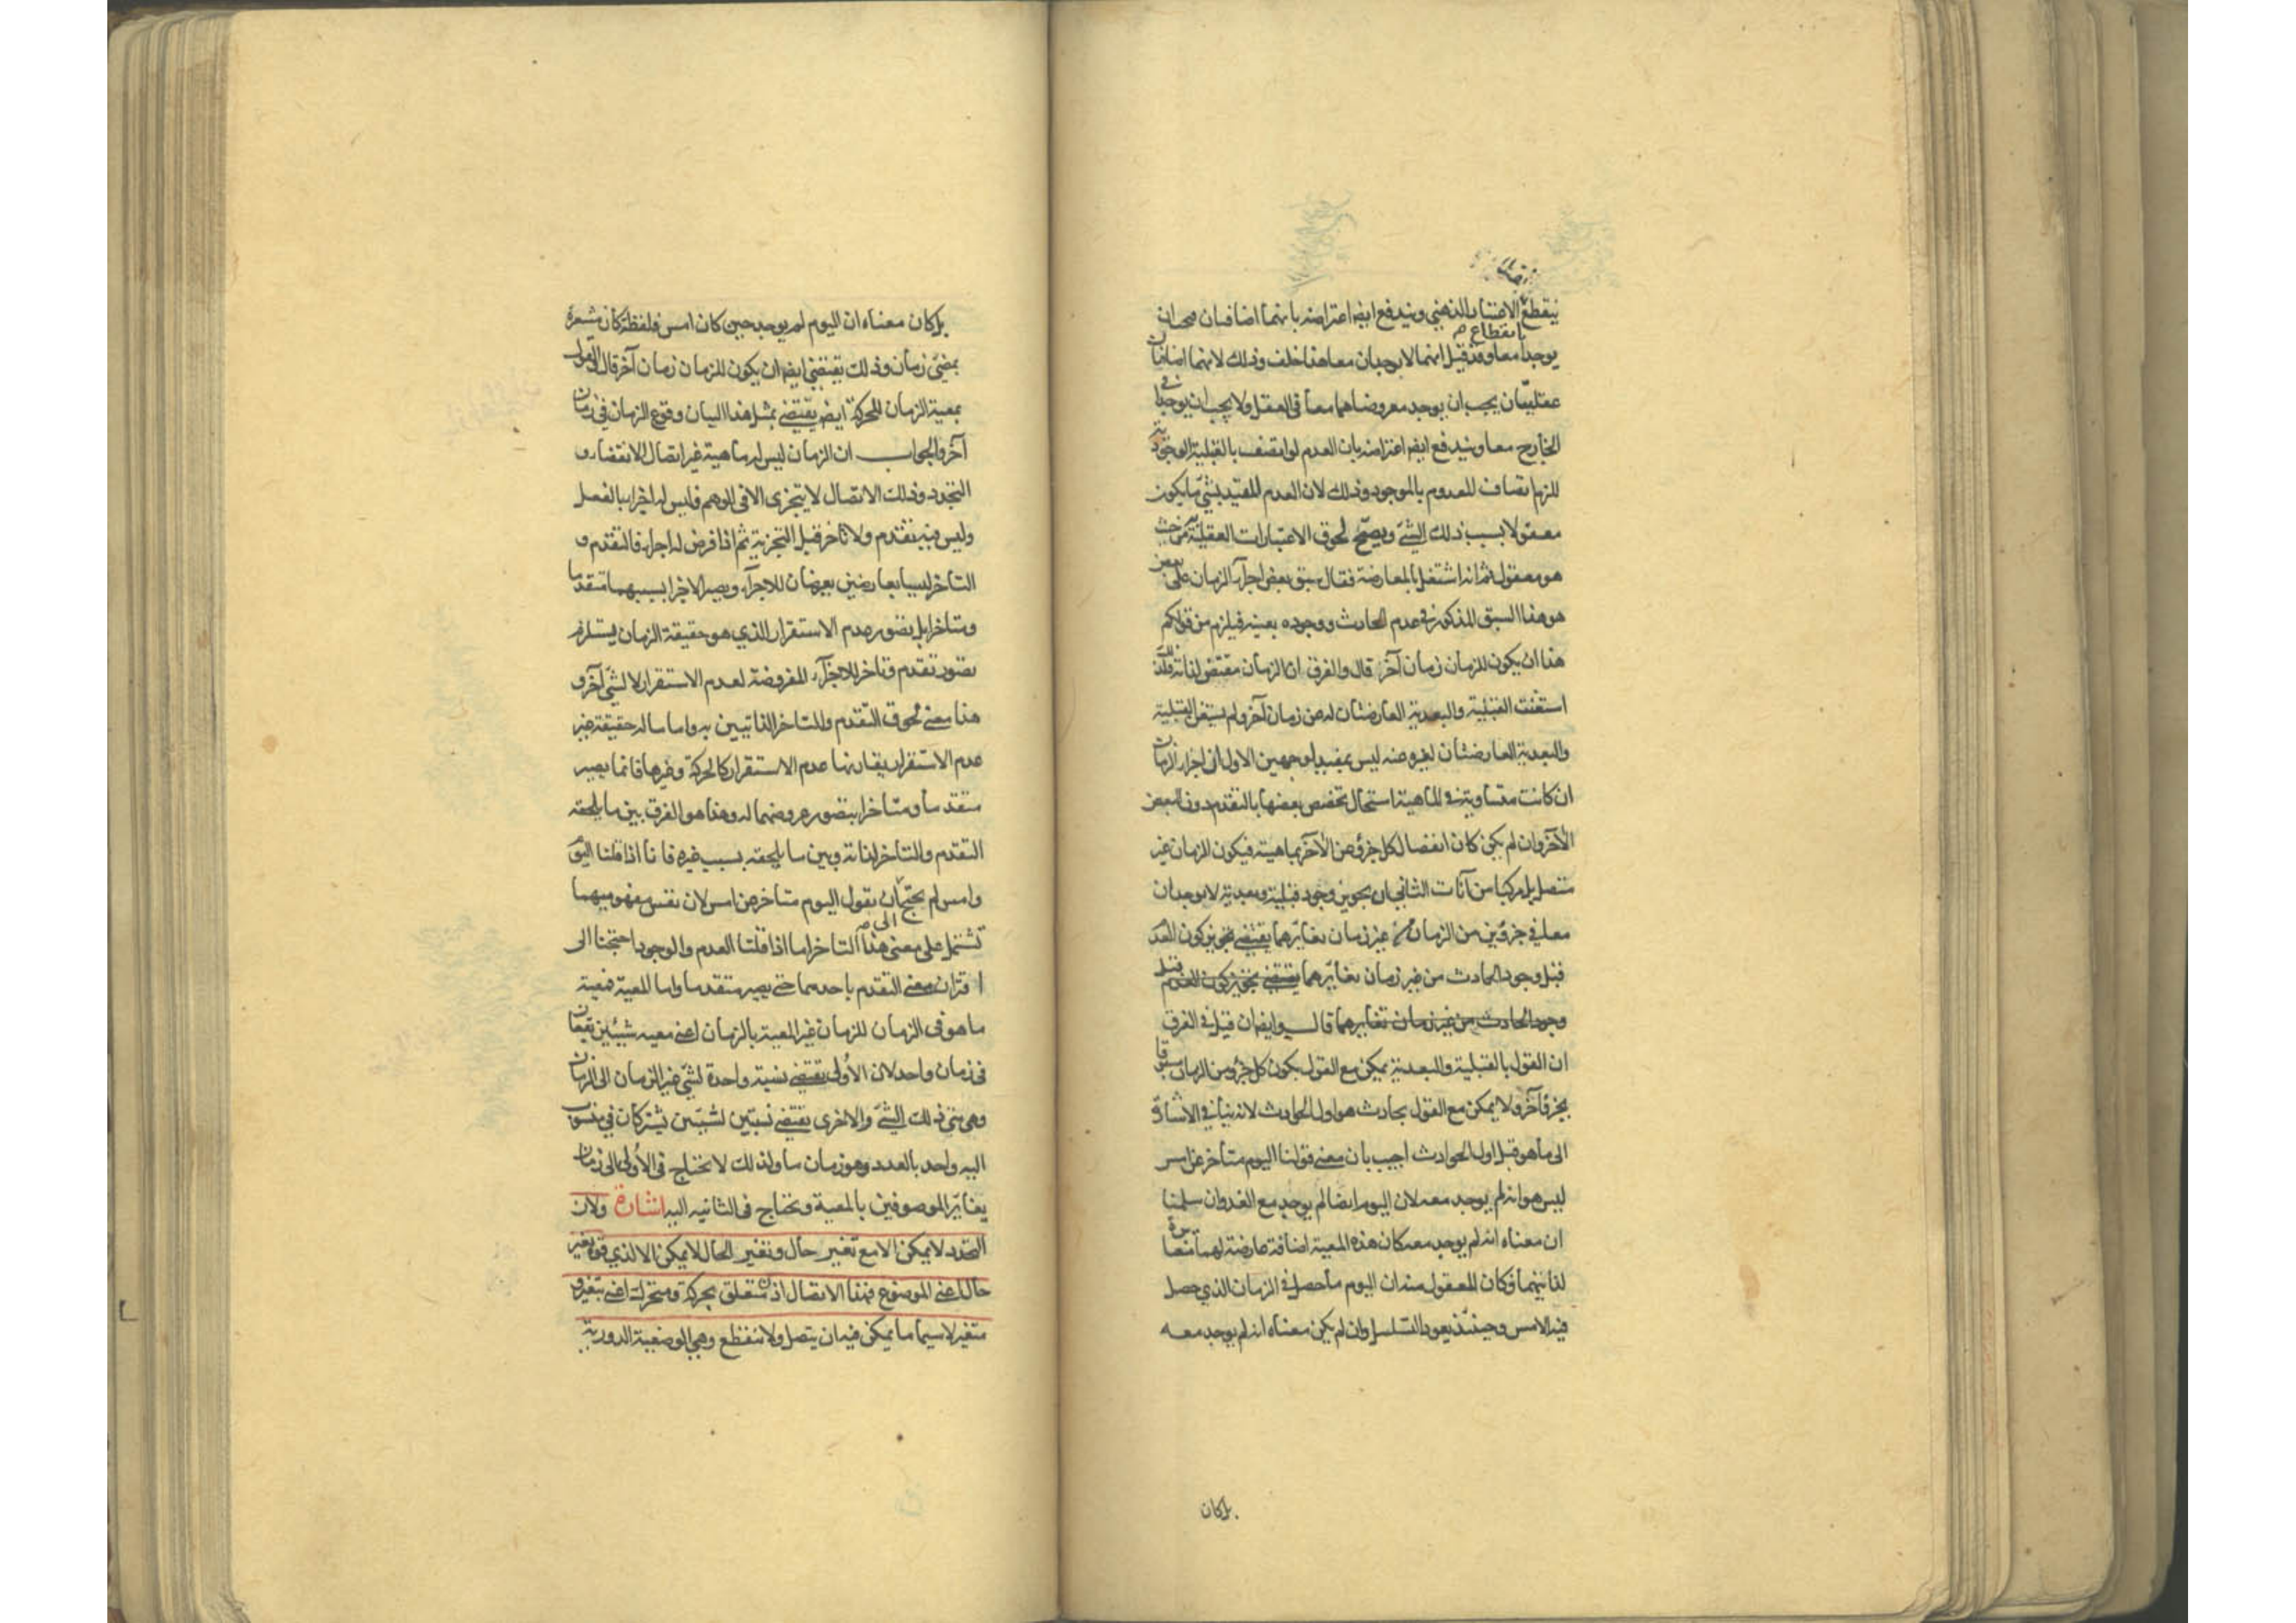 ينقطع الاعتبار الذهنى ويندفع ايضا اعتراضه بانهما اضافتان فيجب ان
بانقطاع
يوجدا معا وقد قيل انهما لا يوجدان معا هذا خلف وذلك لانهما اضافتان
عقليتان يجب ان يوجد معروضاهما معا فى العقل ولا يجب ان يوجدا فى
الخارج معا ويندفع ايضا اعتراضه بان العدم لو اتصف بالقبلية الوجودية
للزم اتصاف المعدوم بالموجود وذلك لان العدم المقيد بشئ ما يكون
معقولا بسبب ذلك الشئ ويصح لحوق الاعتبارات العقلية به من حيث
هو معقول ثم انه اشتغل بالمعارضة فقال سبق بعض اجزاء الزمان على بعض
هو هذا السبق المذكور فى عدم الحادث ووجوده بعينه فيلزم من قولكم
هذا ان يكون للزمان زمان آخر قال والفرق ان الزمان مقتض لذاته فلذلك
استغنت القبلية والبعدية العارضتان له من زمان آخر ولم يستغن القبلية
والبعدية العارضتان لغيره عنه ليس بمفيد لوجهين الاول ان اجزاء الزمان
ان كانت متساوية فى الماهية استحال تخصص بعضها بالتقدم دون البعض
الآخر وان لم يكن كان انفصال كل جزء عن الآخر بماهيته فيكون الزمان غير
متصل بل مركبا من آنات الثانى ان تجويز وجود قبلية وبعدية لا يوجدان
معا فى جزئين من الزمان من غير زمان يغايرهما يقتضى تجويز كون العدم
قبل وجود الحادث من غير زمان يغايرهما يقتضى تجويز كون العدم قبل
وجود الحادث من غير زمان تغايرهما قال وايضا ان قيل فى الفرق
ان القول بالقبلية والبعدية يمكن مع القول بكون كل جزء من الزمان مسبوقا
بجزء آخر ولا يمكن مع القول بحادث هو اول الحوادث لانه ينافى الاشارة
الى ما هو قبل اول الحوادث اجيب بان معنى قولنا اليوم متأخر عن امس
ليس هو انه لم يوجد معه لان اليوم ايضا لم يوجد مع الغد وان سلمنا
ان معناه انه لم يوجد معه كان هذه المعية اضافة عارضة لهما مغايرة
لذاتيهما فكان المعقول منه ان اليوم ما حصل فى الزمان الذي حصل
فيه الامس وحينئذ يعود التسلسل وان لم يكن معناه انه لم يوجد معه
بل كان
بل كان معناه ان اليوم لم يوجد حين كان امس فلفظة كان مشعرة
بمضى زمان وذلك يقتضى ايضا ان يكون للزمان زمان آخر قال القول
بمعية الزمان للحركة ايضا يقتضى بمثل هذا البيان وقوع الزمان فى زمان
آخر والجواب ان الزمان ليس له ماهية غير اتصال الانقضاء و
التجدد وذلك الاتصال لا يتجزى الا فى الوهم فليس له اجزاء بالفعل
وليس فيه تقدم ولا تأخر قبل التجزية ثم اذا فرض له اجزاء فالتقدم و
التأخر ليسا بعارضين يعرضان للاجزاء ويصير الاجزاء بسببهما متقدما
ومتأخرا بل تصور عدم الاستقرار الذي هو حقيقة الزمان يستلزم
تصور تقدم وتأخر للاجزاء المفروضة لعدم الاستقرار لا لشئ آخر و
هذا معنى لحوق التقدم والتأخر الذاتيين به واما ما له حقيقة غير
عدم الاستقرار يقارنها عدم الاستقرار كالحركة وغيرها فانما يصير
متقدما ومتأخرا بتصور عروضهما له وهذا هو الفرق بين ما يلحقه
التقدم والتأخر لذاته وبين ما يلحقه بسبب غيره فانا اذا قلنا اليوم
وامس لم نحتج الى ان نقول اليوم متأخر من امس لان نفس مفهوميهما
تشتمل على معنى هذا التأخر اما اذا قلنا العدم والوجود احتجنا الى
اقتران معنى التقدم باحدهما حتى يصير متقدما واما المعية فمعية
ما هو فى الزمان للزمان غير المعية بالزمان اعنى معية شيئين يقعان
فى زمان واحد لان الاولى تقتضى نسبة واحدة لشئ غير الزمان الى الزمان
وهى متى ذلك الشئ والاخرى تقتضى نسبتين لشيئين يشتركان فى منسوب
اليه واحد بالعدد وهو زمان ما ولذلك لا تحتاج فى الاولى الى زمان
يغاير الموصوفين بالمعية وتحتاج فى الثانيه اليه اشارة ولان
التجدد لا يمكن الا مع تغير حال وتغير الحال لا يمكن الا لذي قوة تغير
حال اعنى الموضوع فهذا الاتصال اذن متعلق بحركة ومتحرك اعنى بتغير و
متغير لا سيما ما يمكن فيه ان يتصل ولا ينقطع وهى الوضعية الدورية